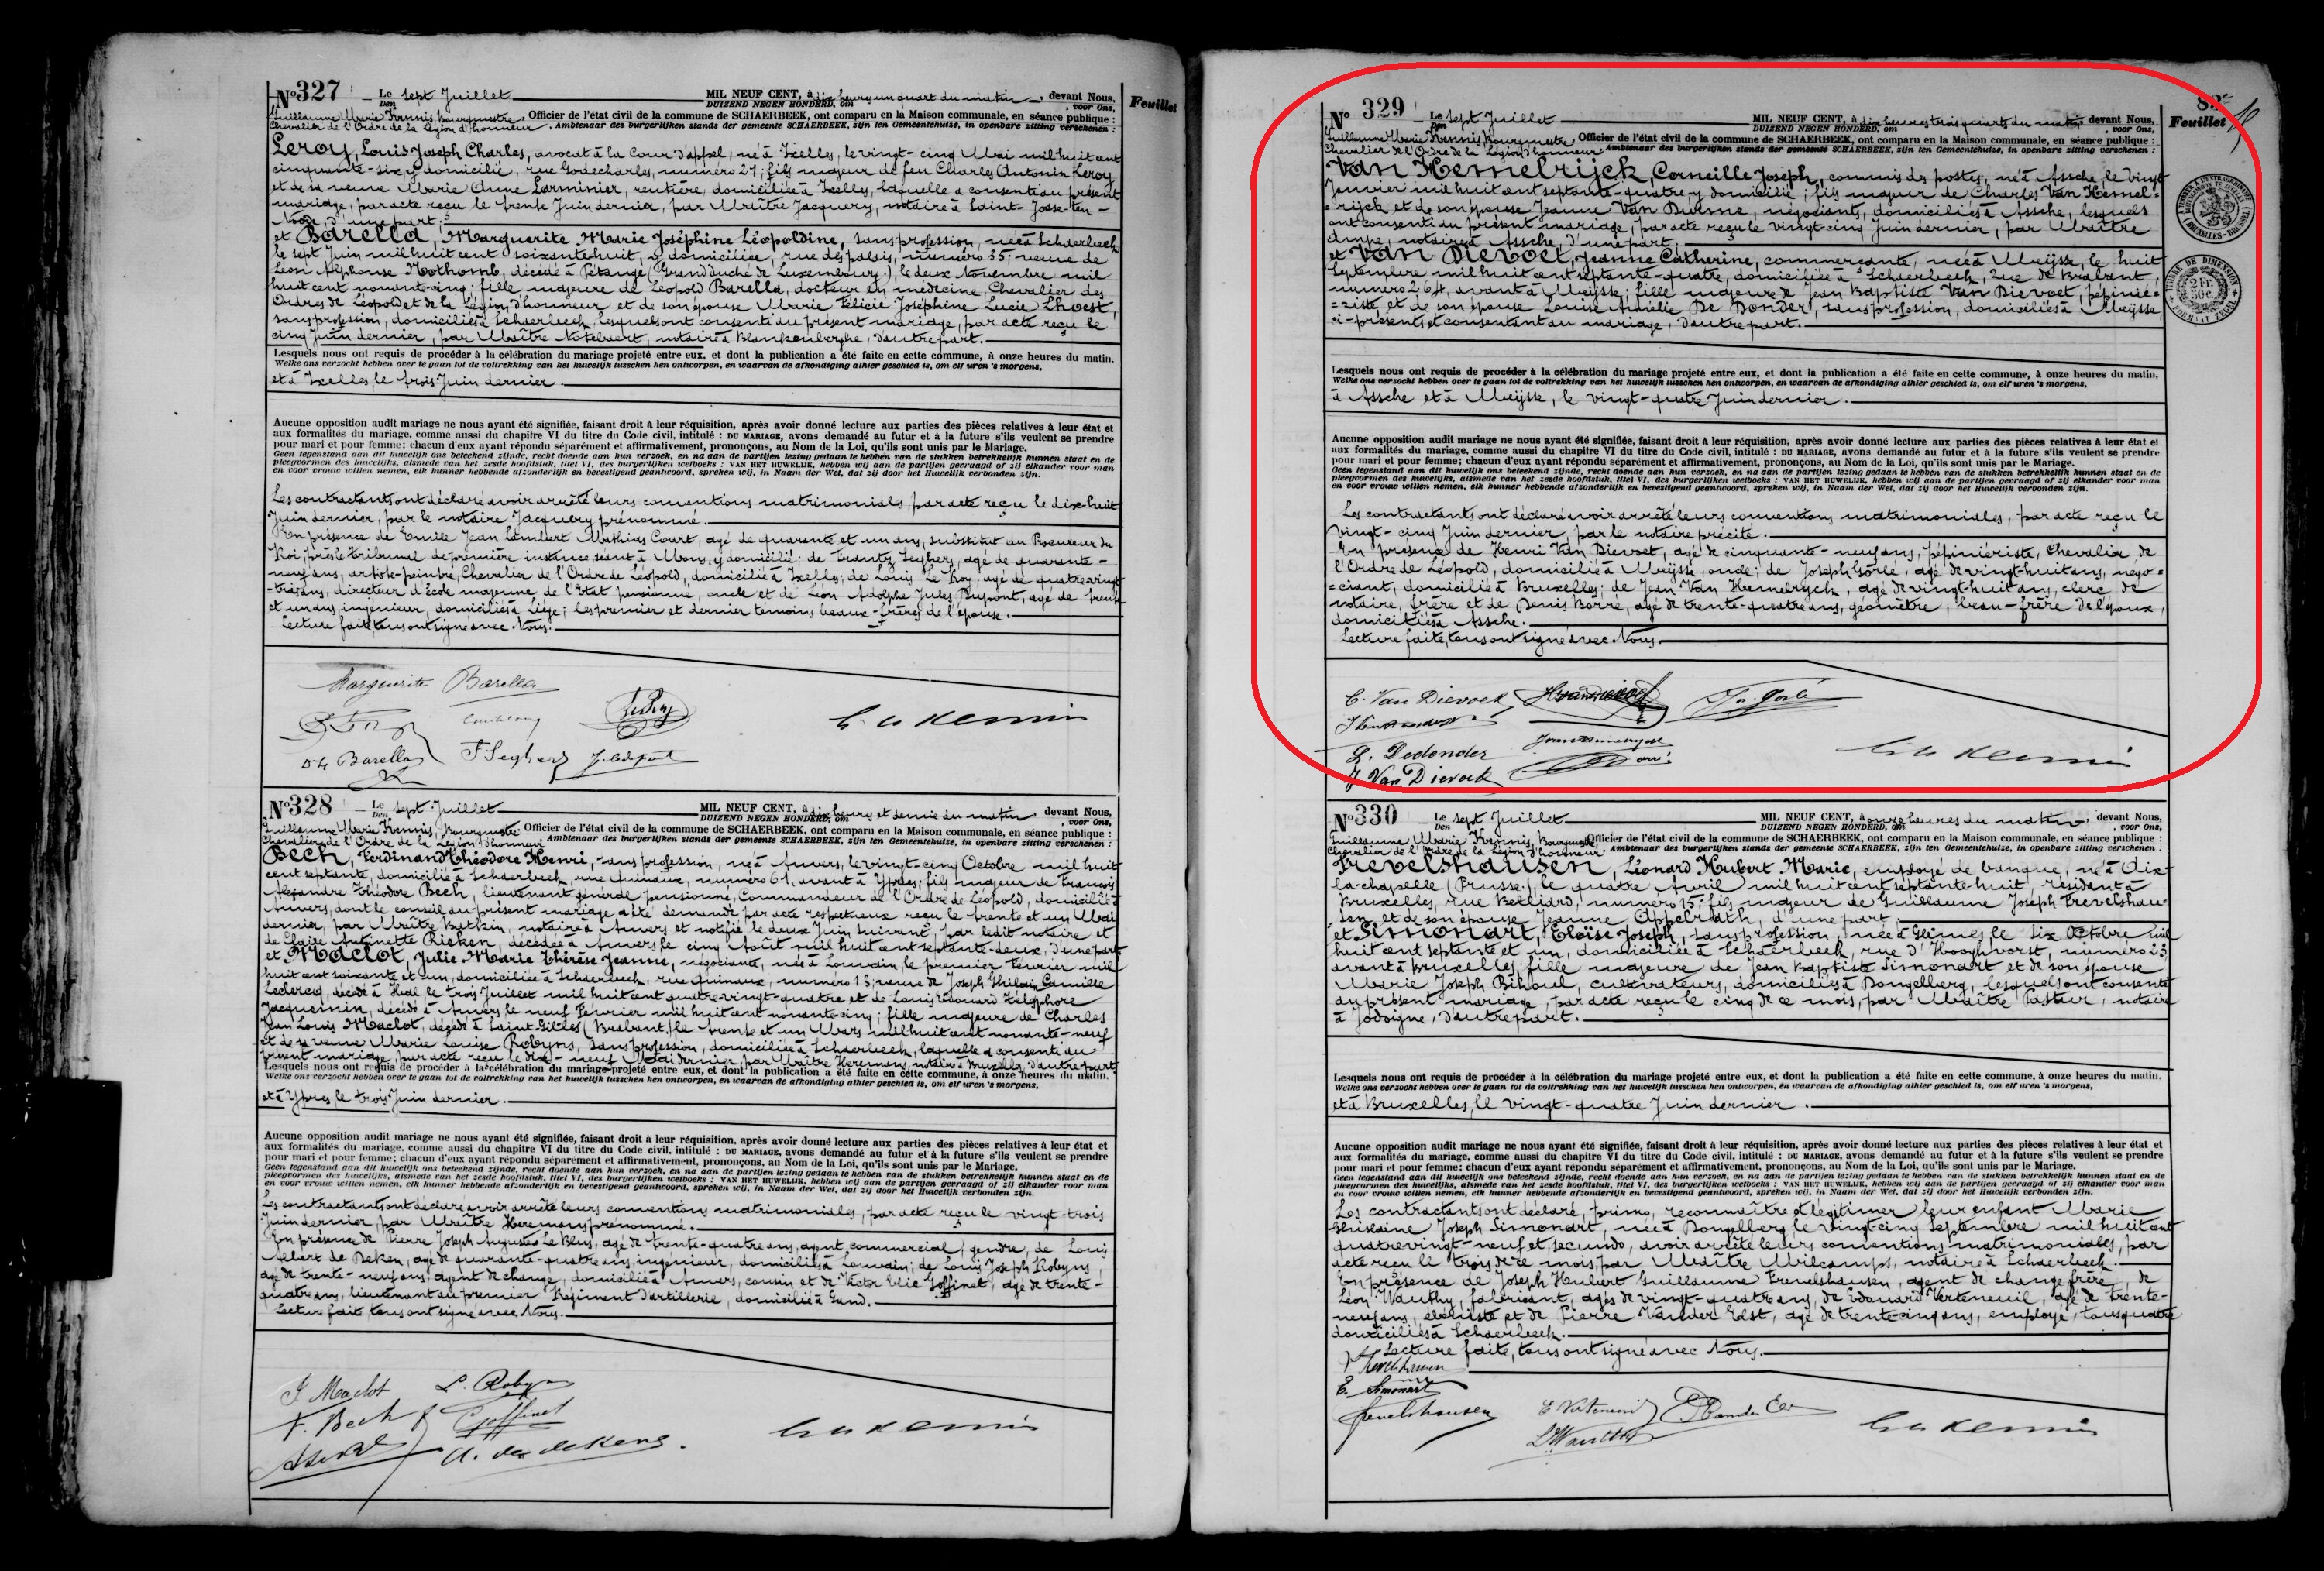 No 327 Le sept Juillet MIL NEUF CENT, à dix heures un quart du matin, devant Nous,
Den DUIZEND NEGEN HONDERD, om , voor Ons,
Guillaume Marie Kennis, Bourgmestre, Officier de l'état civil de la commune de SCHAERBEEK, ont comparu en la Maison communale, en séance publique :
Chevalier de l'Ordre de la Légion d'honneur, Ambtenaar des burgerlijken stands der gemeente SCHAERBEEK, zijn ten Gemeentehuize, in openbare zitting verschenen :
Leroy, Louis Joseph Charles, avocat à la Cour d'appel, né à Ixelles, le vingt-cinq Mai mil huit cent
cinquante-six, y domicilié, rue Godecharles, numéro 27; fils majeur de feu Charles Antonin Leroy
et de sa veuve Marie Anne Larminier, rentière, domiciliée à Ixelles, laquelle a consenti au présent
mariage, par acte reçu le trente Juin dernier, par Maître Jacquery, notaire à Saint-Josse-ten-
Noode, d'une part;
et Barella, Marguerite Marie Joséphine Léopoldine, sans profession, née à Schaerbeek
le sept Juin mil huit cent soixante huit, y domiciliée, rue des palais, numéro 35; veuve de
Léon Alphonse Nothomb, décédé à Pétange (Grand duché de Luxembourg), le deux Novembre mil
huit cent nonante-cinq; fille majeure de Léopold Barella, docteur en médecine, Chevalier des
Ordres de Léopold et de la Légion d'honneur et de son épouse Marie Félicie Joséphine Lucie Lhoest,
sans profession, domiciliés à Schaerbeek, lesquels ont consenti au présent mariage, par acte reçu le
cinq Juin dernier, par Maître notaire à Blankenberghe, d'autre part.
Lesquels nous ont requis de procéder à la célébration du mariage projeté entre eux, et dont la publication a été faite en cette commune, à onze heures du matin.
Welke ons verzocht hebben over te gaan tot de voltrekking van het huwelijk tusschen hen ontworpen, en waarvan de afkondiging alhier geschied is, om elf uren 's morgens,
et à Ixelles, le trois Juin dernier.
Aucune opposition audit mariage ne nous ayant été signifiée, faisant droit à leur réquisition, après avoir donné lecture aux parties des pièces relatives à leur état et
aux formalités du mariage, comme aussi du chapitre VI du titre du Code civil, intitulé : DU MARIAGE, avons demandé au futur et à la future s'ils veulent se prendre
pour mari et pour femme; chacun d'eux ayant répondu séparément et affirmativement, prononçons, au Nom de la Loi, qu'ils sont unis par le Mariage.
Geen tegenstand aan dit huwelijk ons beteekend zijnde, recht doende aan hun verzoek, en na aan de partijen lezing gedaan te hebben van de stukken betrekkelijk hunnen staat en de
pleegvormen des huwelijks, alsmede van het zesde hoofdstuk, titel VI, des burgerlijken wetboeks : VAN HET HUWELIJK, hebben wij aan de partijen gevraagd of zij elkander voor man
en voor vrouw willen nemen, elk hunner hebbende afzonderlijk en bevestigend geantwoord, spreken wij, in Naam der Wet, dat zij door het Huwelijk verbonden zijn.
Les contractants ont déclaré avoir arrêté leurs conventions matrimoniales, par acte reçu le dix-huit
Juin dernier, par le notaire Jacquery prénommé.
En présence de Emile Jean Lambert Mathias Court, âgé de quarante et un ans, substitut du Procureur du
Roi près le tribunal de première instance séant à Mons, y domicilié; de Frantz Seghers, âgé de quarante-
neuf ans, artiste-peintre, Chevalier de l'Ordre de Léopold, domicilié à Ixelles; de Louis Le Roy, âgé de quatre vingt
-trois ans, directeur d'école moyenne de l'Etat pensionné, oncle et de Léon Adolphe Jules Dupont, âgé de trente
et un ans, ingénieur, domicilié à Liège; les premier et dernier témoins beaux-frères de l'épouse.
Lecture faite, tous ont signé avec Nous.
Marguerite Barella
Barella
F Seghers
No 328 Le sept Juillet MIL NEUF CENT, à dix heures et demie du matin, devant Nous,
Den DUIZEND NEGEN HONDERD, om , voor Ons,
Guillaume Marie Kennis, Bourgmestre Officier de l'état civil de la commune de SCHAERBEEK, ont comparu en la Maison communale, en séance publique :
Chevalier de l'Ordre de la Légion d'honneur Ambtenaar des burgerlijken stands der gemeente SCHAERBEEK, zijn ten Gemeentehuize, in openbare zitting verschenen :
Bech, Ferdinand Théodore Henri, sans profession, né à Anvers, le vingt-cinq Octobre mil huit
cent septante, domicilié à Schaerbeek, rue Quinaux, numéro 61, avant à Ypres; fils majeur de François
Alexandre Théodore Bech, lieutenant général pensionné, Commandeur de l'Ordre de Léopold, domicilié à
Anvers, dont le conseil au présent mariage a été demandé par acte respectueux reçu le trente et un Mai
dernier, par Maître notaire à Anvers et notifié le deux Juin suivant, par ledit notaire et
de Claire Antoinette Rieken, décédée à Anvers le cinq Août mil huit cent septante-deux, d'une part
et Maclot, Julie Marie Thérèse Jeanne, négociante, née à Louvain, le premier Février mil
huit cent soixante et un, domiciliée à Schaerbeek, rue Quinaux, numéro 13; veuve de Joseph Ghilain Camille
Leclercq, décédé à le trois Juillet mil huit cent quatre-vingt-quatre et de Louis Edouard Télesphore
Jacquemin, décédé à Anvers le neuf Février mil huit cent nonante-cinq; fille majeure de Charles
Jean Louis Maclot, décédé à Saint-Gilles (Brabant), le trente et un Mars mil huit cent nonante-neuf
et de sa veuve Marie Louise Robyns, sans profession, domiciliée à Schaerbeek, laquelle a consenti au
présent mariage, par acte reçu le dix-neuf Mai dernier, par Maître Heremans, notaire à Bruxelles, d'autre part.
Lesquels nous ont requis de procéder à la célébration du mariage projeté entre eux, et dont la publication a été faite en cette commune, à onze heures du matin.
Welke ons verzocht hebben over te gaan tot de voltrekking van het huwelijk tusschen hen ontworpen, en waarvan de afkondiging alhier geschied is, om elf uren 's morgens,
et à Ypres, le trois Juin dernier.
Aucune opposition audit mariage ne nous ayant été signifiée, faisant droit à leur réquisition, après avoir donné lecture aux parties des pièces relatives à leur état et
aux formalités du mariage, comme aussi du chapitre VI du titre du Code civil, intitulé : DU MARIAGE, avons demandé au futur et à la future s'ils veulent se prendre
pour mari et pour femme; chacun d'eux ayant répondu séparément et affirmativement, prononçons, au Nom de la Loi, qu'ils sont unis par le Mariage.
Geen tegenstand aan dit huwelijk ons beteekend zijnde, recht doende aan hun verzoek, en na aan de partijen lezing gedaan te hebben van de stukken betrekkelijk hunnen staat en de
pleegvormen des huwelijks, alsmede van het zesde hoofdstuk, titel VI, des burgerlijken wetboeks : VAN HET HUWELIJK, hebben wij aan de partijen gevraagd of zij elkander voor man
en voor vrouw willen nemen, elk hunner hebbende afzonderlijk en bevestigend geantwoord, spreken wij, in Naam der Wet, dat zij door het Huwelijk verbonden zijn.
Les contractants ont déclaré avoir arrêté leurs conventions matrimoniales, par acte reçu le vingt-trois
Juin dernier, par Maître Heremans prénommé.
En présence de Pierre Joseph Auguste Le Blus, âgé de trente-quatre ans, agent commercial, gendre, de Louis
Albert de Deken, âgé de quarante-quatre ans, ingénieur, domiciliés à Louvain; de Louis Joseph Robyns,
âgé de trente-neuf ans, agent de change, domicilié à Anvers, cousin et de Victor Elie Goffinet, âgé de trente-
quatre ans, lieutenant au premier Régiment d'artillerie, domicilié à Gand.
Lecture faite, tous ont signé avec Nous.
J Maclot L. Robyns
F. Bech Goffinet
Feuillet
82e
Feuillet
No 329 Le sept Juillet MIL NEUF CENT, à dix heures trois quarts du matin devant Nous,
Den DUIZEND NEGEN HONDERD, om , voor Ons,
Guillaume Marie Kennis, Bourgmestre Officier de l'état civil de la commune de SCHAERBEEK, ont comparu en la Maison communale, en séance publique :
Chevalier de l'Ordre de la Légion d'honneur Ambtenaar des burgerlijken stands der gemeente SCHAERBEEK, zijn ten Gemeentehuize, in openbare zitting verschenen :
Van Hemelrijck, Corneille Joseph, commis des postes, né à Assche, le vingt
Janvier mil huit cent septante-quatre, y domicilié; fils majeur de Charles Van Hemel=
=rijck et de son épouse Jeanne Van Duesme, négociants, domiciliés à Assche, lesquels
ont consenti au présent mariage, par acte reçu le vingt-cinq Juin dernier, par Maître
Crupe, notaire à Assche, d'une part.
et Van Dievoet, Jeanne Catherine, commerçante, née à Meijsse, le huit
Septembre mil huit cent septante-quatre, domiciliée à Schaerbeek, rue de Brabant,
numéro 264, avant à Meijsse; fille majeure de Jean Baptiste Van Dievoet, pépinié=
=riste et de son épouse Louise Amélie De Donder, sans profession, domiciliés à Meijsse,
ci-présents et consentant au mariage, d'autre part.
Lesquels nous ont requis de procéder à la célébration du mariage projeté entre eux, et dont la publication a été faite en cette commune, à onze heures du matin.
Welke ons verzocht hebben over te gaan tot de voltrekking van het huwelijk tusschen hen ontworpen, en waarvan de afkondiging alhier geschied is, om elf uren 's morgens,
à Assche et à Meijsse, le vingt-quatre Juin dernier.
Aucune opposition audit mariage ne nous ayant été signifiée, faisant droit à leur réquisition, après avoir donné lecture aux parties des pièces relatives à leur état et
aux formalités du mariage, comme aussi du chapitre VI du titre du Code civil, intitulé : DU MARIAGE, avons demandé au futur et à la future s'ils veulent se prendre
pour mari et pour femme; chacun d'eux ayant répondu séparément et affirmativement, prononçons, au Nom de la Loi, qu'ils sont unis par le Mariage.
Geen tegenstand aan dit huwelijk ons beteekend zijnde, recht doende aan hun verzoek, en na aan de partijen lezing gedaan te hebben van de stukken betrekkelijk hunnen staat en de
pleegvormen des huwelijks, alsmede van het zesde hoofdstuk, titel VI, des burgerlijken wetboeks : VAN HET HUWELIJK, hebben wij aan de partijen gevraagd of zij elkander voor man
en voor vrouw willen nemen, elk hunner hebbende afzonderlijk en bevestigend geantwoord, spreken wij, in Naam der Wet, dat zij door het Huwelijk verbonden zijn.
Les contractants ont déclaré avoir arrêté leurs conventions matrimoniales, par acte reçu le
vingt-cinq Juin dernier, par le notaire précité.
En présence de Henri Van Dievoet, âgé de cinquante-neuf ans, pépiniériste, Chevalier de
l'Ordre de Léopold, domicilié à Meijsse, oncle; de Joseph Görlé, âgé de vingt-huit ans, négo=
=ciant, domicilié à Bruxelles; de Jean Van Hemelryck, âgé de vingt-huit ans, clerc de
notaire, frère et de Denis Borré, âgé de trente-quatre ans, géomètre, beau-frère de l'époux,
domiciliés à Assche.
Lecture faite, tous ont signé avec Nous.
C. Van Dievoet
L. Dedonder
J Van Dievoet
TIMBRE DE DIMENSION
2 Fr.
50 c.
FORMAAT ZEGEL
No 330 Le sept Juillet MIL NEUF CENT, à onze heures du matin, devant Nous,
Den DUIZEND NEGEN HONDERD, om , voor Ons,
Guillaume Marie Kennis, Bourgmestre, Officier de l'état civil de la commune de SCHAERBEEK, ont comparu en la Maison communale, en séance publique :
Chevalier de l'Ordre de la Légion d'honneur Ambtenaar des burgerlijken stands der gemeente SCHAERBEEK, zijn ten Gemeentehuize, in openbare zitting verschenen :
Frevelshausen, Léonard Hubert Marie, employé de banque, né à Aix-
la-chapelle (Prusse), le quatre Avril mil huit cent septante-huit, résidant à
Bruxelles, rue Belliard, numéro 15; fils majeur de Guillaume Joseph Frevelshau=
sen et de son épouse Jeanne Appelrath, d'une part;
et Simonart, Eloïse Joseph, sans profession, née à Glimes, le six Octobre mil
huit cent septante et un, domiciliée à Schaerbeek, rue d'Hooghvorst, numéro 23
avant à Bruxelles; fille majeure de Jean Baptiste Simonart et de son épouse
Marie Joseph Bihoul, cultivateurs, domiciliés à Bomgelberg, lesquels ont consenti
au présent mariage, par acte reçu le cinq de ce mois, par Maître Pastur, notaire
à Jodoigne, d'autre part.
Lesquels nous ont requis de procéder à la célébration du mariage projeté entre eux, et dont la publication a été faite en cette commune, à onze heures du matin.
Welke ons verzocht hebben over te gaan tot de voltrekking van het huwelijk tusschen hen ontworpen, en waarvan de afkondiging alhier geschied is, om elf uren 's morgens,
et à Bruxelles, le vingt-quatre Juin dernier.
Aucune opposition audit mariage ne nous ayant été signifiée, faisant droit à leur réquisition, après avoir donné lecture aux parties des pièces relatives à leur état et
aux formalités du mariage, comme aussi du chapitre VI du titre du Code civil, intitulé : DU MARIAGE, avons demandé au futur et à la future s'ils veulent se prendre
pour mari et pour femme; chacun d'eux ayant répondu séparément et affirmativement, prononçons, au Nom de la Loi, qu'ils sont unis par le Mariage.
Geen tegenstand aan dit huwelijk ons beteekend zijnde, recht doende aan hun verzoek, en na aan de partijen lezing gedaan te hebben van de stukken betrekkelijk hunnen staat en de
pleegvormen des huwelijks, alsmede van het zesde hoofdstuk, titel VI, des burgerlijken wetboeks : VAN HET HUWELIJK, hebben wij aan de partijen gevraagd of zij elkander voor man
en voor vrouw willen nemen, elk hunner hebbende afzonderlijk en bevestigend geantwoord, spreken wij, in Naam der Wet, dat zij door het Huwelijk verbonden zijn.
Les contractants ont déclaré, primo, reconnaître et légitimer leur enfant Marie
Ghislaine Joseph Simonart, née à Bomgelberg le vingt-cinq Septembre mil huit cent
quatrevingt-neuf et, secundo, avoir arrêté leurs conventions matrimoniales, par
acte reçu le trois de ce mois, par Maître Milcamps, notaire à Schaerbeek.
En présence de Joseph Hubert Guillaume Frevelshausen, agent de change, frère, de
Léon Wauthy, fabricant, âgés de vingt-quatre ans, de Edouard Verteneuil, âgé de trente-
neuf ans, ébéniste et de Pierre Vander Elst, âgé de trente-cinq ans, employé, tous quatre
domiciliés à Schaerbeek.
Lecture faite, tous ont signé avec Nous.
E. Simonart
Frevelshausen